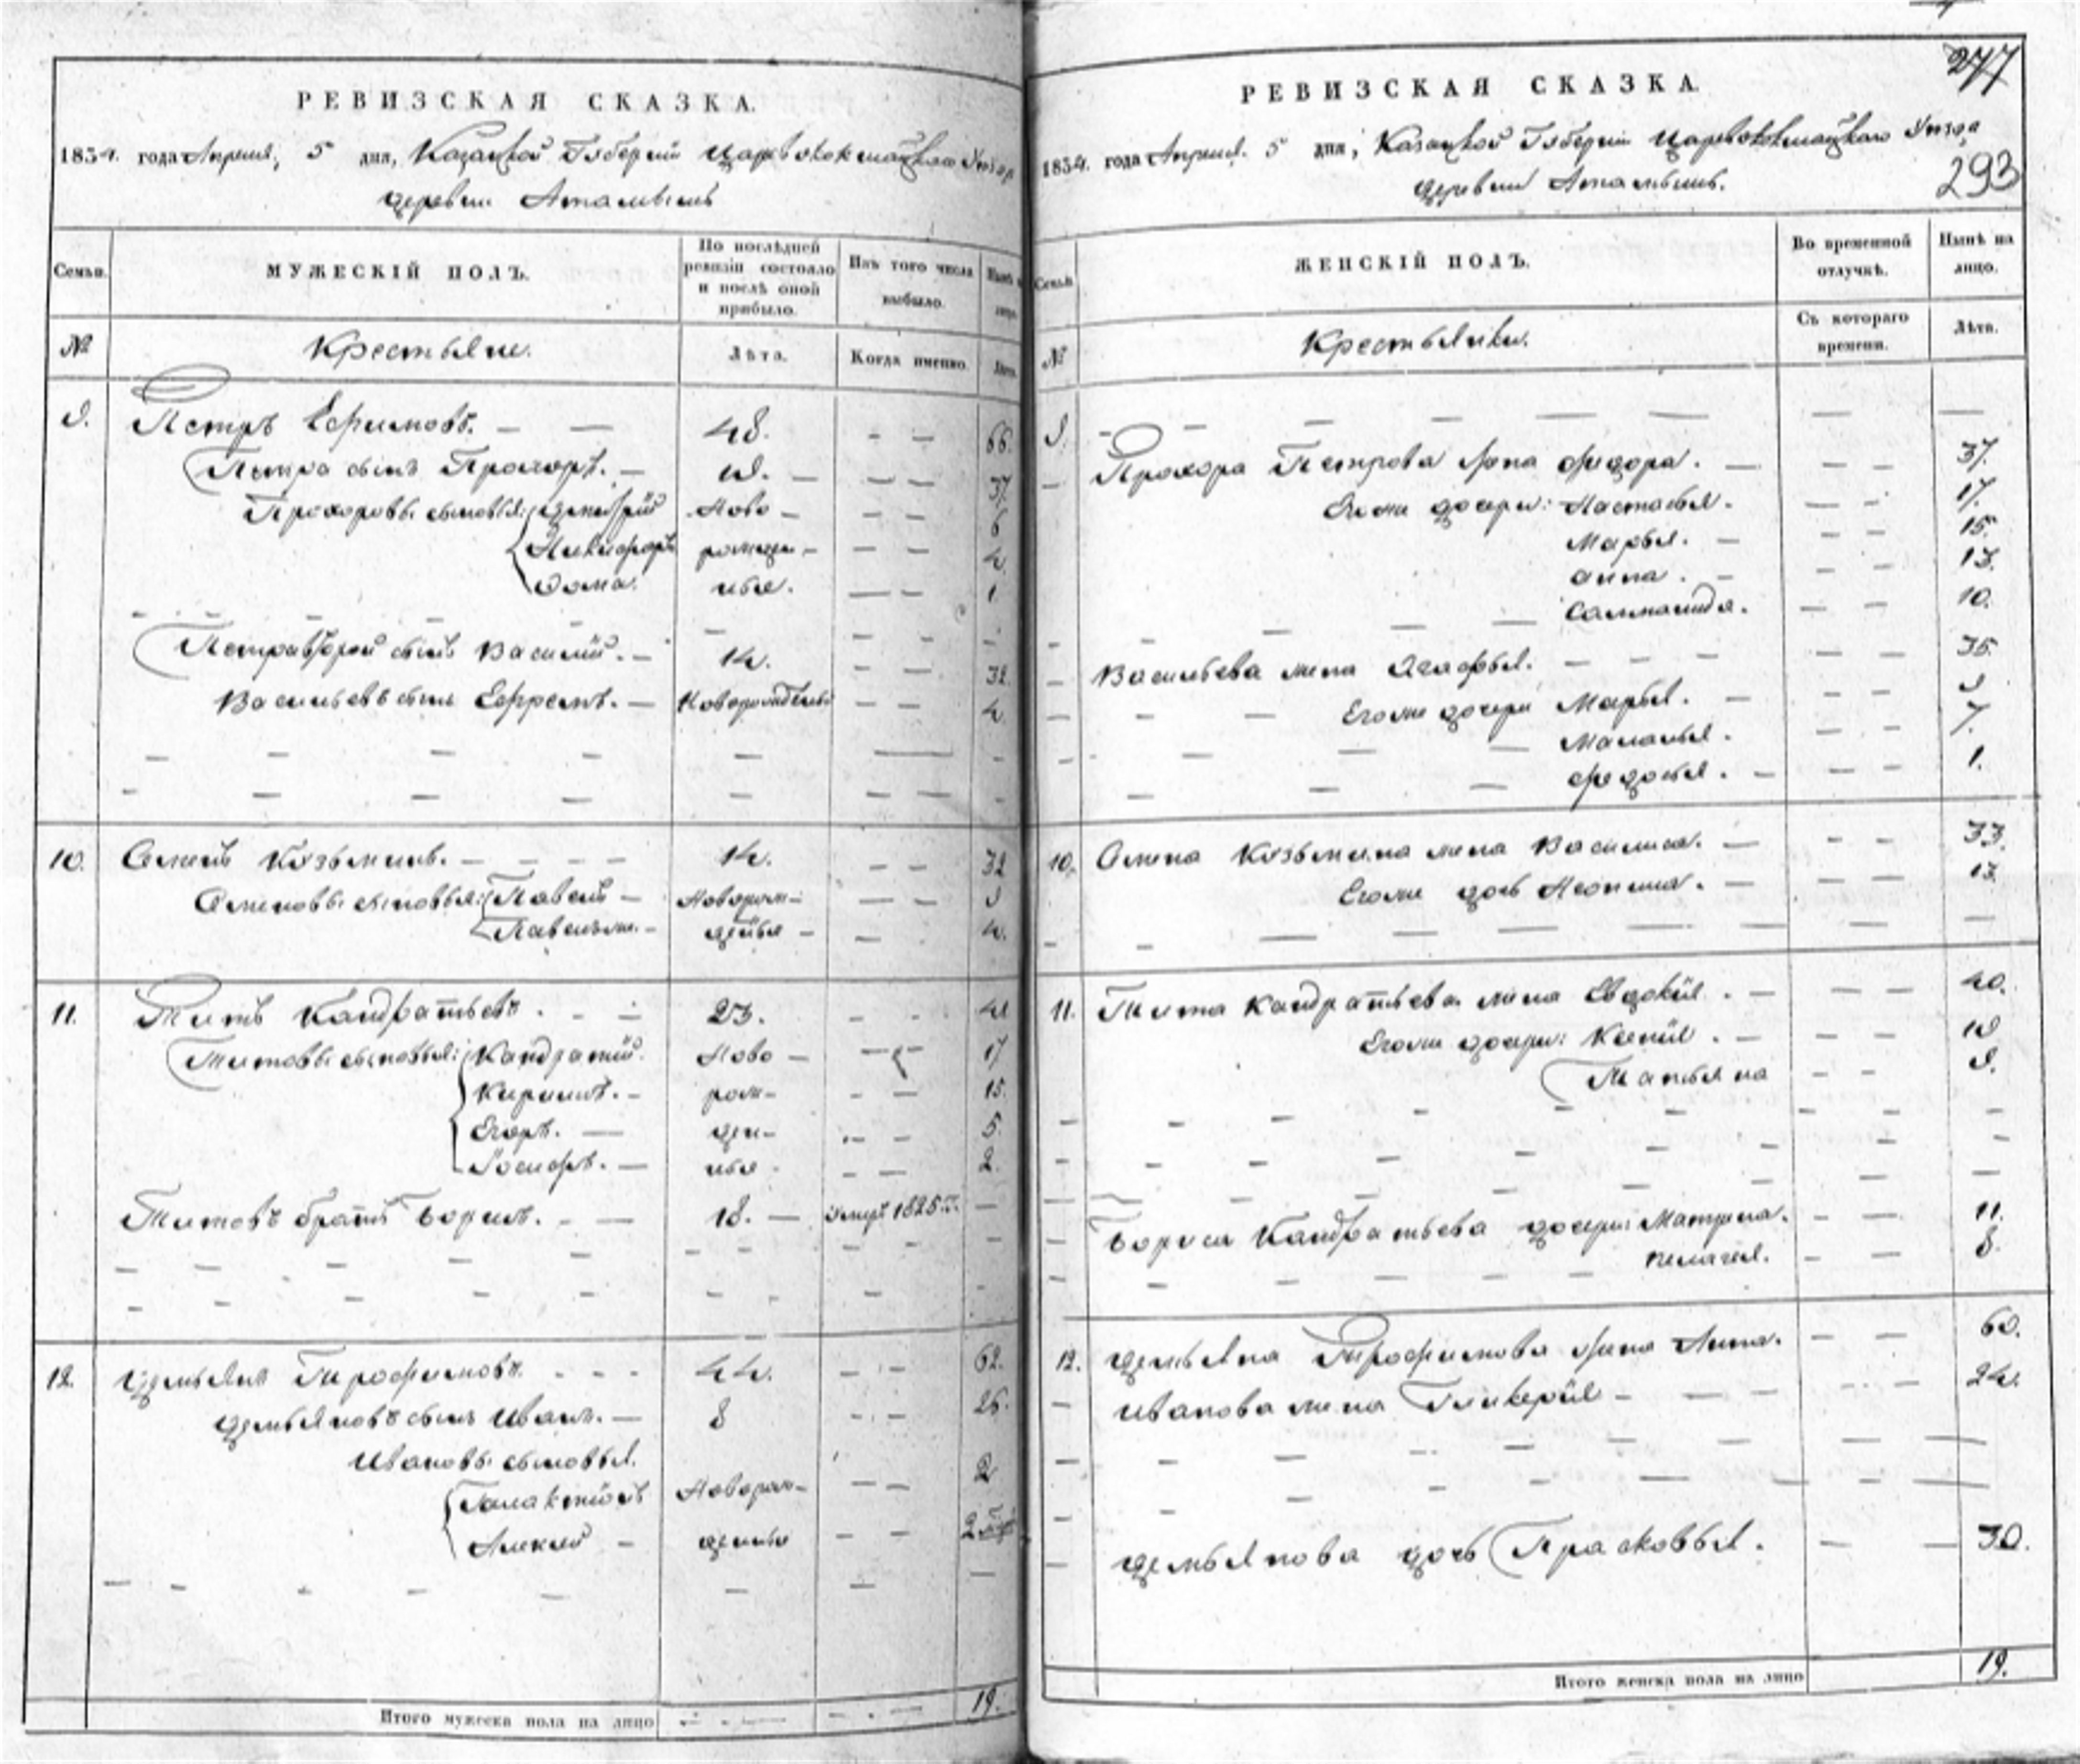 РЕВИЗСКАЯ СКАЗКА.
1834. года Апреля, 5 дня, Казанской Губернии Царевококшайскаго Уезда
деревни
Семьи.
МУЖЕСКІЙ ПОЛЪ.
По послѣдней ревизіи состояло и послѣ оной прибыло.
Изъ того числа выбыло.
№
Крестьяне.
Лѣта.
Когда именно.
Лѣта.
9. Петръ Ефимовъ. 48. 66.
Петра сынъ Прохоръ. 19. 37.
Прохоровы сыновья: Дмитрій Ново 6
Никифоръ рожден 4.
Фома. ныя. 1.
Петра второй сынъ Василий. 14. 32.
Васильевъ сынъ Ефремъ. Новорожденный 4.
10. Семенъ Козьминъ. 14. 32
Семеновы сыновья: Павелъ Деворож 9
дены 4.
11. Титъ Кандратьевъ. 23. 41
Титовы сыновья: Кандратий. Ново 17
Кирилъ. рож 15.
Егоръ. ден 5.
Іосифъ. ныя 2.
Титовъ братъ Борисъ. 18. умеръ 1825
12. Демьянъ Трофимовъ. 44. 62.
Демьяновъ сынъ Иванъ. 8 26.
Ивановы сыновья.
Галактіонъ Деворож 2
Алексей дены 2
Итого мужеска пола на лицо 19.
277
РЕВИЗСКАЯ СКАЗКА.
1834. года Апреля. 5 дня, Казанской Губернии Царевококшайскаго Уезда
293
деревни
Семьи.
ЖЕНСКІЙ ПОЛЪ.
Во временной отлучкѣ.
Нынѣ на лицо.
№
Крестьянки.
Съ котораго времени.
Лѣта.
9.
Прохора Петрова жена Федора. 37.
Егоже дочери: Настасья. 17.
Марья. 15.
Анна. 13.
10.
Васильева жена Агафья. 35.
Егоже дочери Марья. 9
Маланья. 7.
Федосья. 1.
10. Семена Козьмина жена Василиса. 33.
Егоже дочь 13.
11. Тита Кандратьева жена Евдокія. 40.
Егоже дочери: Ксенія. 19
Татьяна 9.
Бориса Кандратьева дочери: Матрена. 11.
Пелагея. 8.
12. Демьяна Трофимова жена Анна. 60.
Иванова жена Гликерія 24.
Демьянова дочь Прасковья. 30.
Итого женска пола на лицо 19.